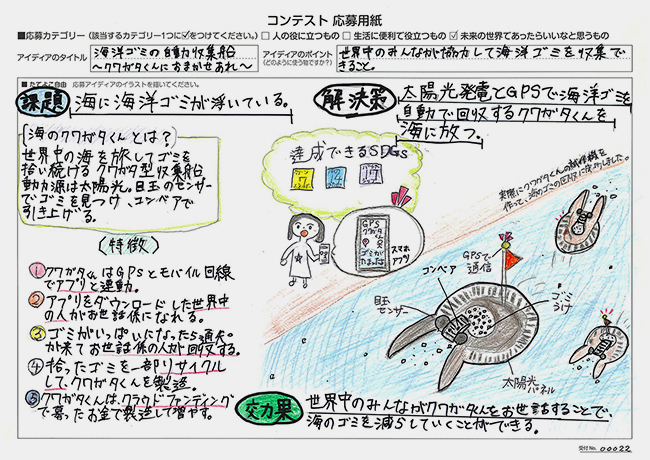 コンテスト 応募用紙
■応募カテゴリー（該当するカテゴリー1つに☑をつけてください。）□ 人の役に立つもの □ 生活に便利で役立つもの ☑ 未来の世界であったらいいなと思うもの
アイディアのタイトル
海洋ゴミの自動収集船
〜クワガタくんにおまかせあれ〜
アイディアのポイント
(どのように使う物ですか?)
世界中のみんなが協力して海洋ゴミを収集で
きること。
■たてよこ自由 応募アイディアのイラストを描いてください。
課題
海に海洋ゴミが浮いている。
解決策
太陽光発電とGPSで海洋ゴミを
自動で回収するクワガタくんを
海に放つ。
海のクワガタくんとは？
世界中の海を旅してゴミを
拾い続けるクワガタ型収集船
動力源は太陽光。目玉のセンサー
でゴミを見つけ、コンベアで
引き上げる。
(特徴)
① クワガタくんはGPSとモバイル回線
でアプリと連動。
② アプリをダウンロードした世界中
の人がお世話係になれる。
③ ゴミがいっぱいになったら通知
が来てお世話係の人が回収する。
④ 拾ったゴミを一部リサイクル
してクワガタくんを製造。
⑤ クワガタくんは、クラウドファンディング
で募ったお金で製造して増やす。
達成できるSDGs
7
14
17
GPS
クワガタ
くん
ゴミが
スマホ
アプリ
実際にクワガタくんの試作機を
作って、海のゴミの回収に成功しました。
GPSで
通信
コンベア
目玉
センサー
ゴミ
うけ
太陽光
パネル
効果
世界中のみんながクワガタくんをお世話することで、
海のゴミを減らしていくことができる。
受付No. 00022